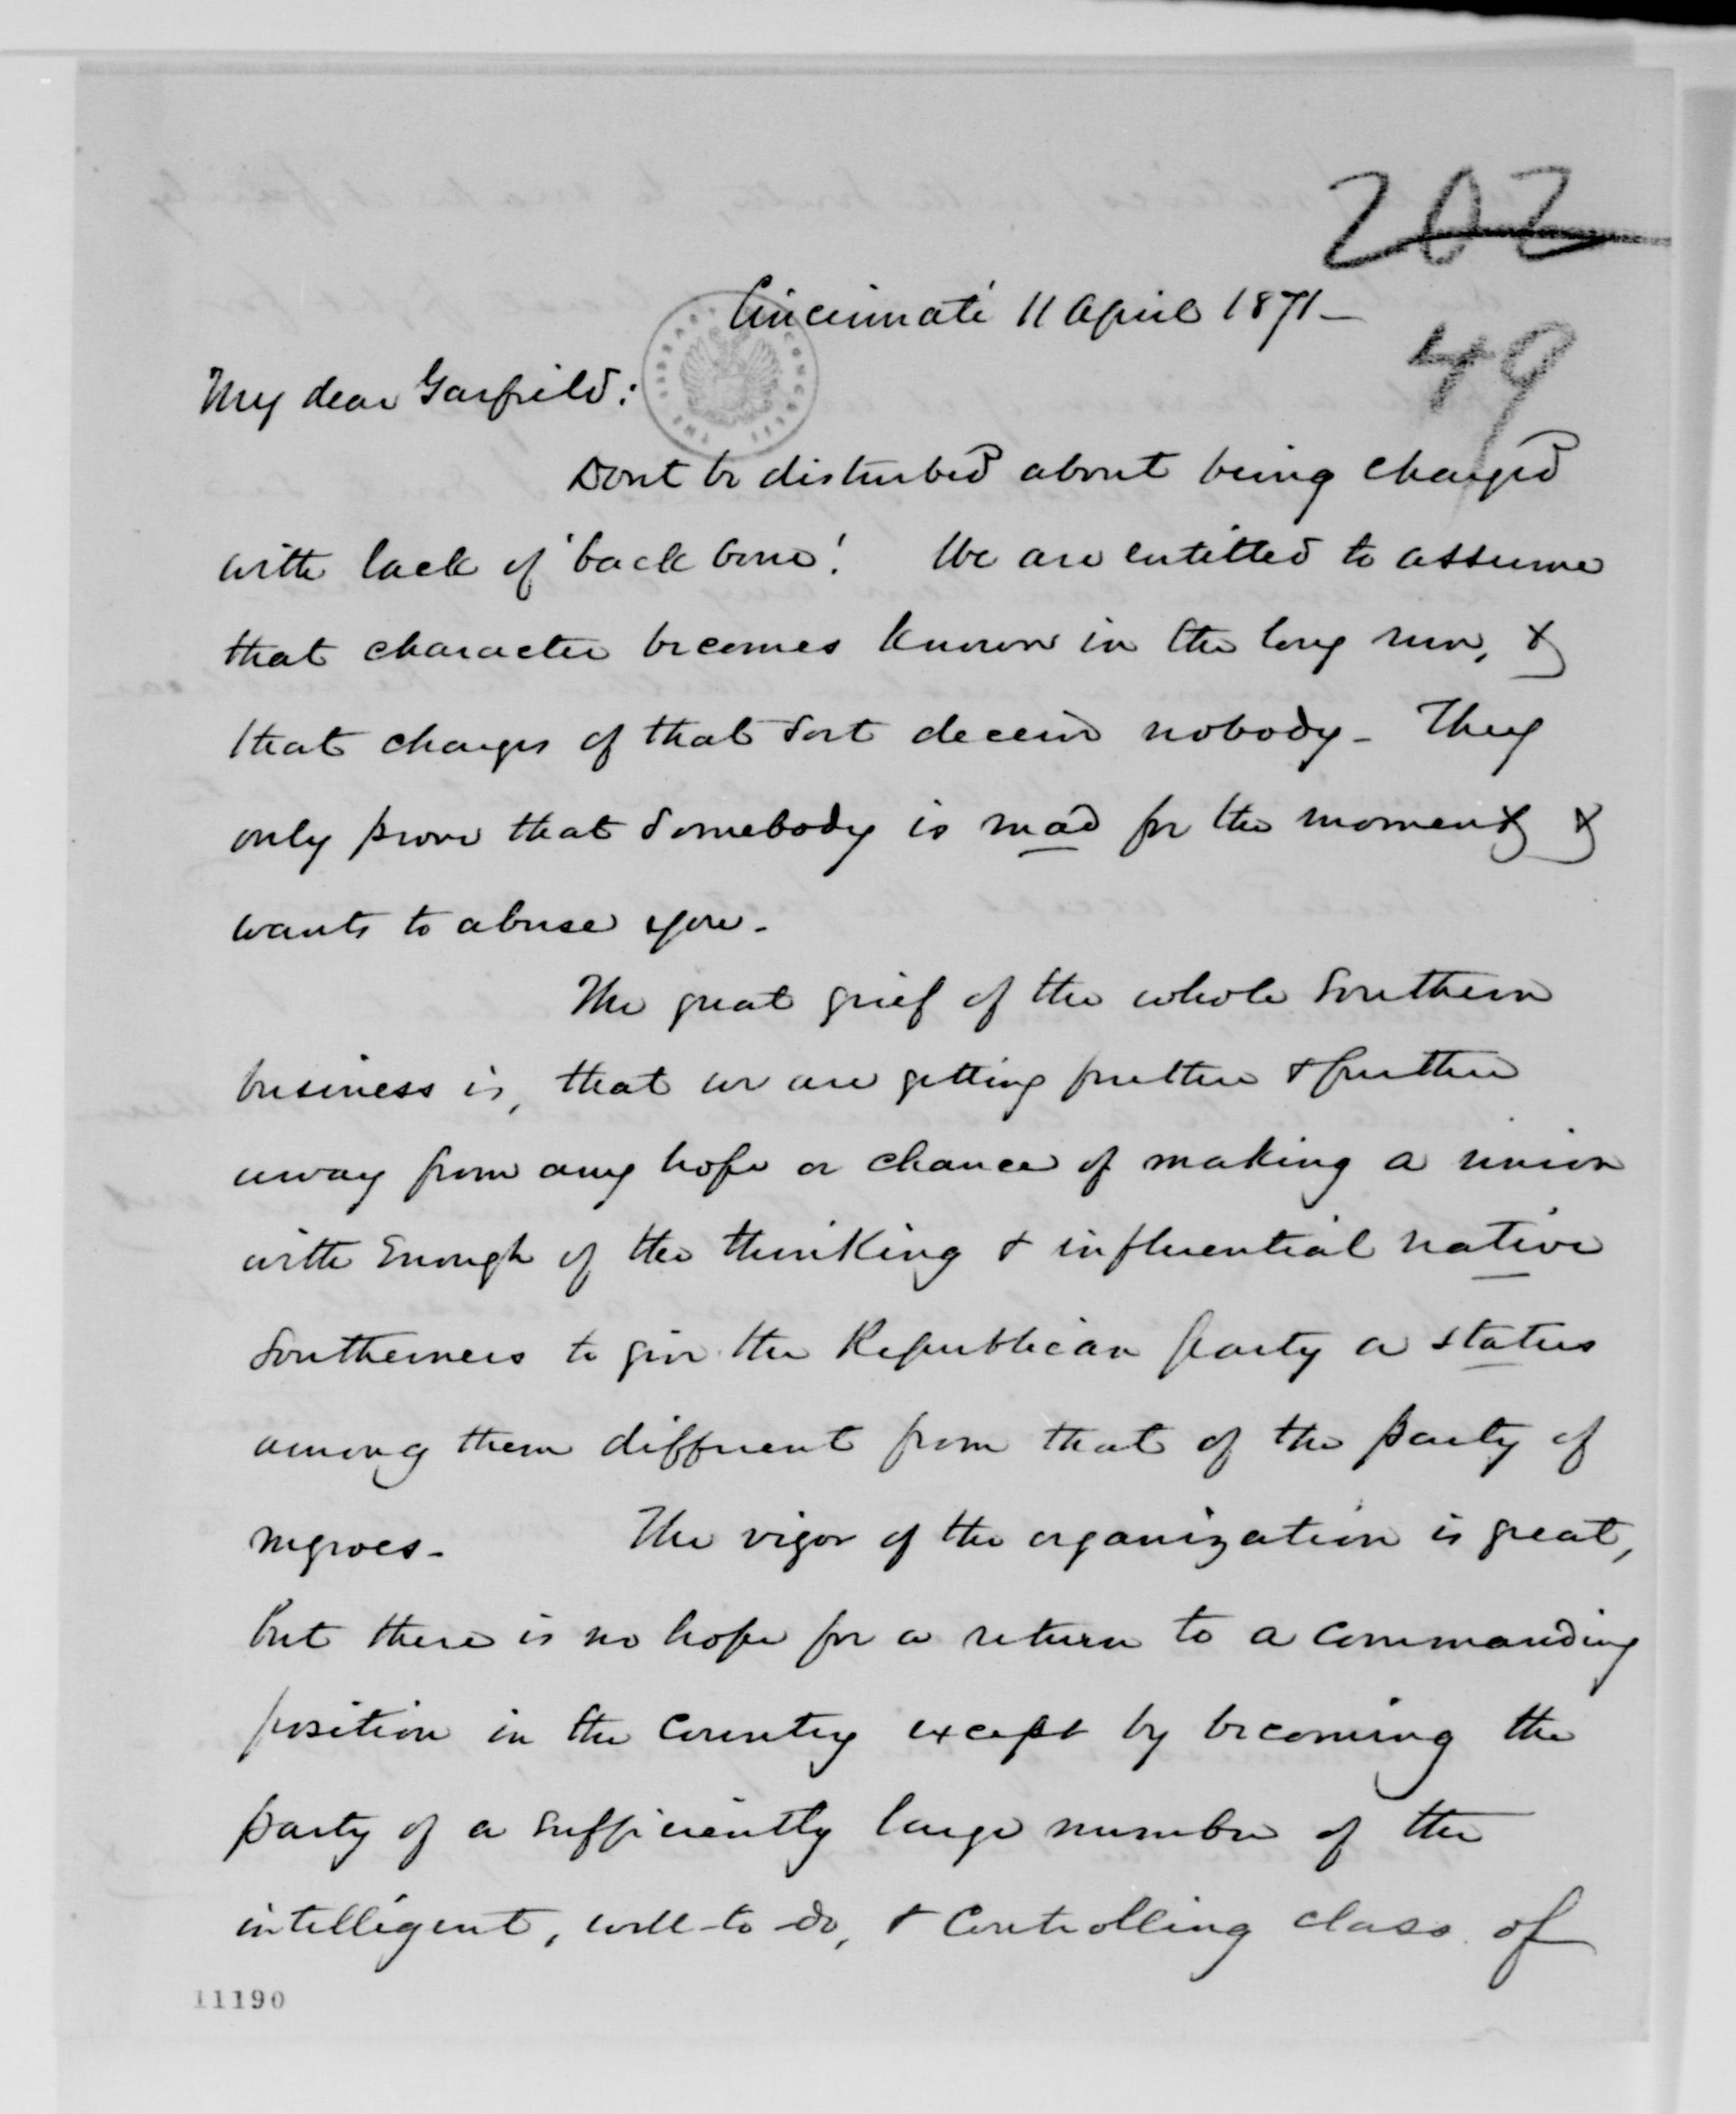 202
Cincinnati 11 April 1871 -
49
My dear Garfield:
Dont be disturbed about being charged
with lack of 'back bone'! We are entitled to assume
that character becomes known in the long run, &
that charges of that sort deceive nobody - They
only prove that somebody is mad for the moment & 
wants to abuse you.
The great grief of the whole Southern
business is, that we are getting further & further
away from any hope or chance of making a union
with enough of the thinking & influential native
Southerners to give the Republican party a status
among them different from that of the party of
negroes - The vigor of the organization is great,
but there is no hope for a return to a commanding
position in the country except by becoming the
party of a sufficiently large number of the
intelligent, well-to-do, & controlling class of
11190